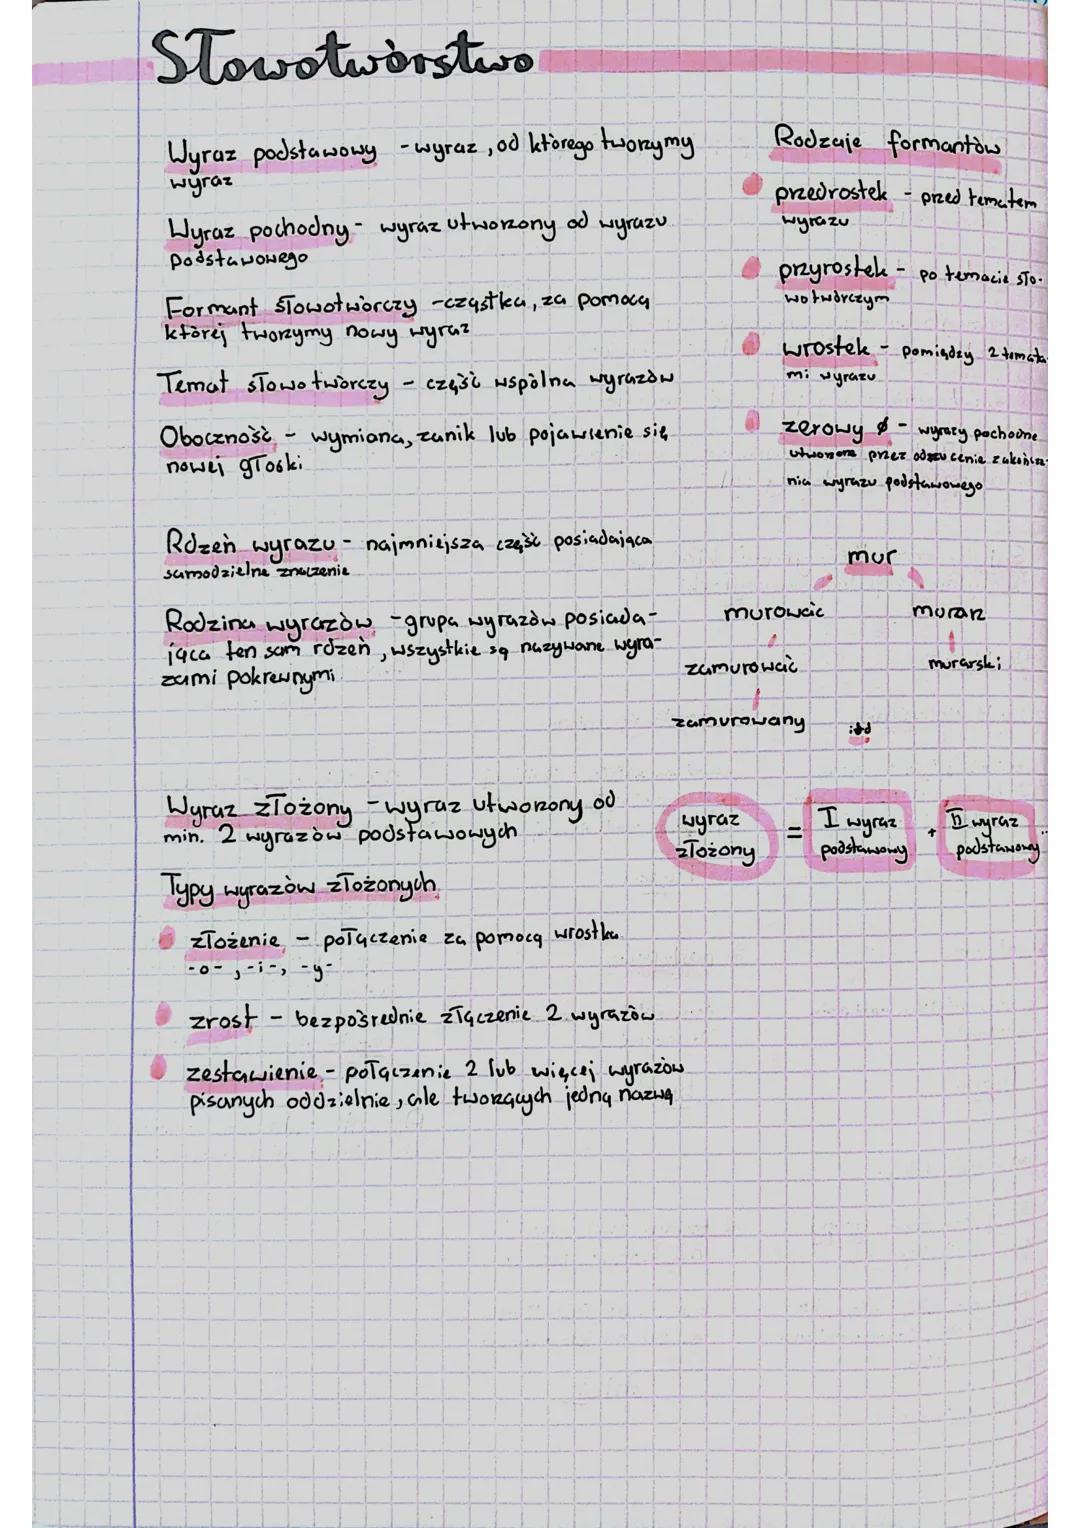 Słowotwórstwo
Wyraz podstawowy - wyraz, od którego tworzymy
wyraz
Wyraz pochodny - wyraz utworzony od wyrazu
podstawowego
Formant słowotwórczy - cząstka, za pomocą
której tworzymy nowy wyraz
Temat słowotwórczy - część wspólna wyrazów
Oboczność - wymiana, zanik lub pojawienie się
nowej głoski
Rdzeń wyrazu - najmniejsza część posiadająca
samodzielne znaczenie
Rodzina wyrazów - grupa wyrazów posiada-
jąca ten sam rdzeń, wszystkie są nazywane wyra-
zami pokrewnymi
Rodzaje formantów
przedrostek - przed tematem
wyrazu
przyrostek - po temacie sło-
wotwórczym
wrostek - pomiędzy 2 temata
mi wyrazu
zerowy ø - wyrazy pochodne
utworzone przez odrzucenie zakończe-
nia wyrazu podstawowego
mur
murować murarz
zamurować murarski
zamurowany itd
Wyraz złożony - wyraz utworzony od
min. 2 wyrazów podstawowych
wyraz
złożony
=
I wyraz
podstawowy
+
II wyraz
podstawowy
...
Typy wyrazów złożonych
złożenie - połączenie za pomocą wrostka
-o-, -i-, -y-
zrost - bezpośrednie złączenie 2 wyrazów
zestawienie - połączenie 2 lub więcej wyrazów
pisanych oddzielnie, ale tworzących jedną nazwę